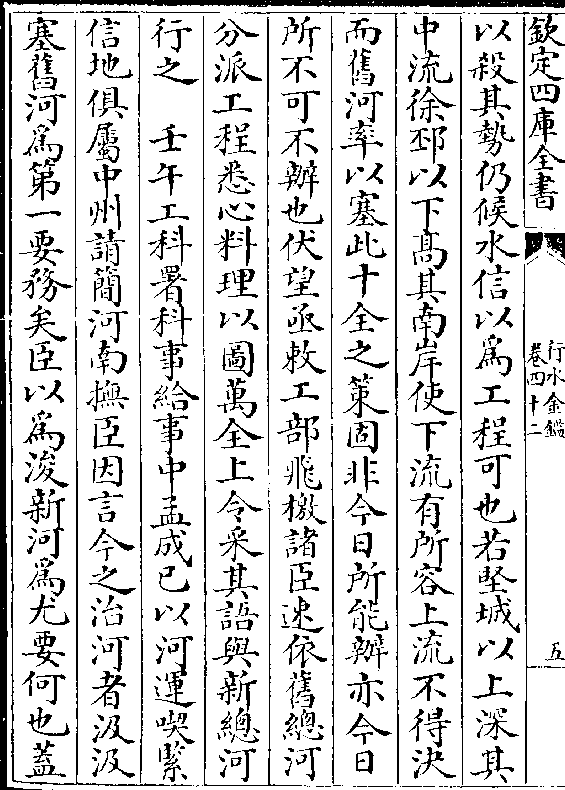 欽定四庫全書
行水金鑑
卷四十二
五
以殺其勢仍候水信以為工程可也若堅城以上深其
中流徐邳以下髙其南岸使下流有所容上流不得決
而舊河率以塞此十全之策固非今日所能辦亦今日
所不可不辦也伏望亟敕工部飛檄諸臣速依舊總河
分派工程悉心料理以圖萬全上令采其語與新總河
行之　壬午工科署科事給事中孟成己以河運喫緊
信地俱屬中州請簡河南撫臣因言今之治河者汲汲
塞舊河為第一要務矣臣以為浚新河為尤要何也蓋